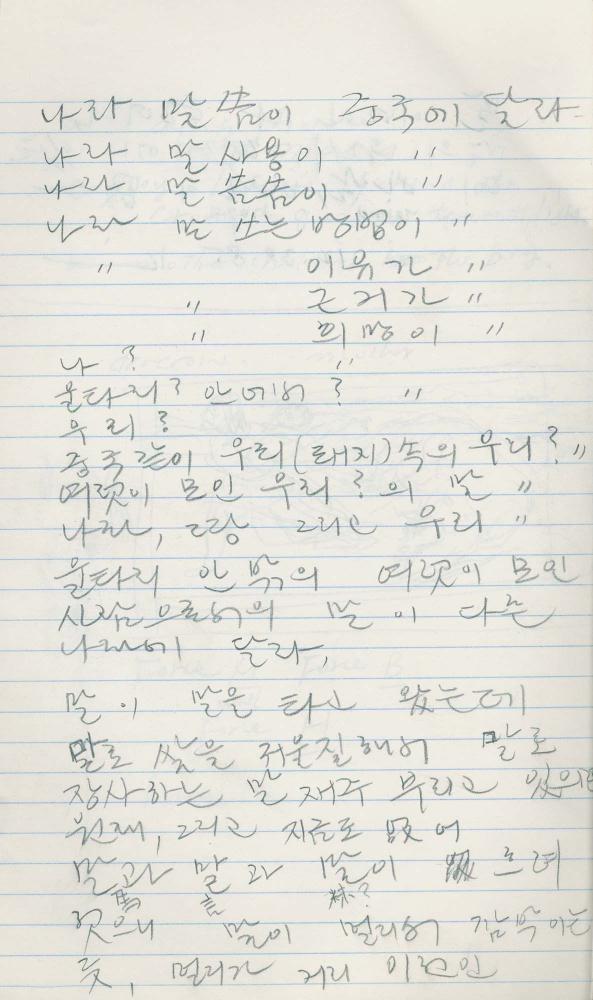 나라 말씀이 중국에 달라
나라 말 사용이 〃
나라 말 씀씀이 〃
나라 말 쓰는 방법이 〃
〃 이유가 〃
〃 근거가 〃
〃 희망이 〃
나? 〃
울타리? 안에서? 〃
우리?
중국같이 우리(돼지)속의 우리? 〃
여럿이 모인 우리?의 말 〃
나라, 그랑 그리고 우리 〃
울타리 안 밖의 여럿이 모인
시점으로서의 말이 다른
나라에 달라,
말이 말을 타고 왔는데
말로 쌀을 저울질해서 말로
장사하는 말 재주 부리고 있으면
원래, 그리고 지금도
말과 말과 말이 흐려
馬 言 ?
젓으니 말이 멀리서 깜박이는
듯, 멀리가 거리